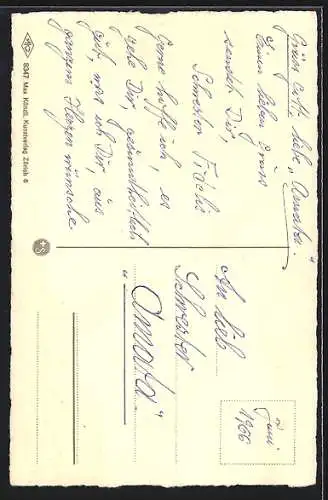 Grüss Gott, liebe „Amata".
Einen lieben Gruss
sendet Dir,
Schwester
Gerne hoffe ich, es
gehe Dir, gesundheitlich
gut, was ich Dir, aus
ganzem Herzen wünsche.
8047 Max Künzli, Kunstverlag Zürich 6
An lieb.
Schwester
„Amata"
Juni
1966